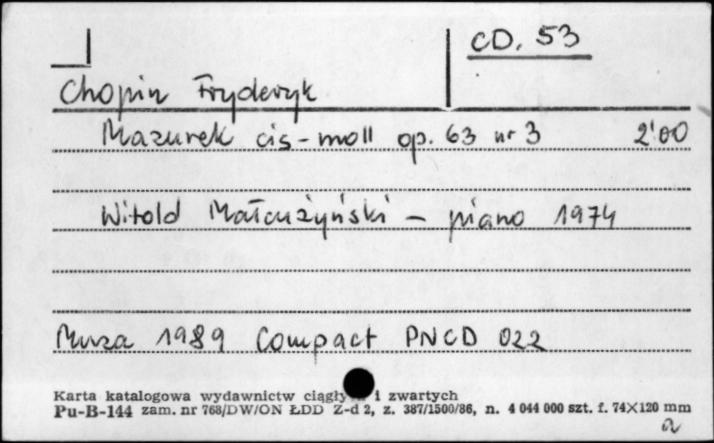 CD. 53
Chopin Fryderyk
Mazurek cis-moll op. 63 nr 3 2'00
Witold Małcużyński - piano 1974
Muza 1989 Compact PNCD 022
Karta katalogowa wydawnictw ciągły i zwartych
Pu-B-144 zam. nr 768/DW/ON ŁDD Z-d 2, z. 387/1500/86, n. 4 044 000 szt. f. 74X120 mm